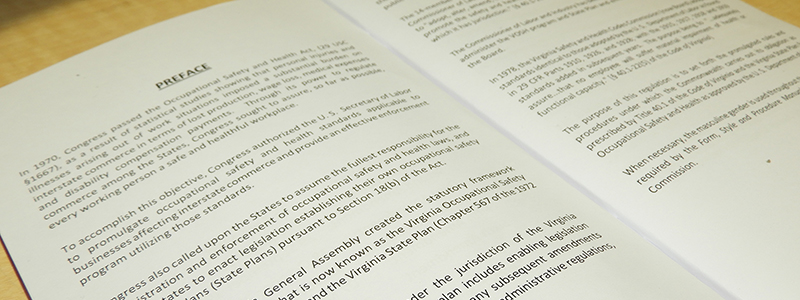 PREFACE
In 1970, Congress passed the Occupational Safety and Health Act, (29 USC
§1667), as a result of statistical studies showing that personal injuries and
illnesses arising out of work situations imposed a substantial burden on
interstate commerce in terms of lost production, wage loss, medical expenses
and disability compensation payments. Through its power to regulate
commerce among the States, Congress sought to assure, so far as possible,
every working person a safe and healthful workplace.
To accomplish this objective, Congress authorized the U. S. Secretary of Labor
to promulgate occupational safety and health standards applicable to
businesses affecting interstate commerce and provide an effective enforcement
program utilizing those standards.
Congress also called upon the States to assume the fullest responsibility for the
administration and enforcement of occupational safety and health laws, and
States to enact legislation establishing their own occupational safety
plans (State Plans) pursuant to Section 18(b) of the Act.
General Assembly created the statutory framework
what is now known as the Virginia Occupational Safety
and the Virginia State Plan (Chapter 567 of the 1972
under the jurisdiction of the Virginia
plan includes enabling legislation
any subsequent amendments
administrative regulations,
The 14-member
Commissioner of
to "adopt,
promote the safety and
which it has jurisdiction."
The Commissioner of Labor and Industry
administer the VOSH program and State Plan and
the Board.
In 1978, the Virginia Safety and Health Codes Commission
standards identical to those adopted by the U. S. Department of Labor
in 29 CFR Parts 1910, 1926, and 1928, with the 1915, 1917, 2018 and
standards added in subsequent years. The purpose being to
assure that no employee will suffer material impairment of health or
functional capacity." (§ 40.1-22(5) of the Code of Virginia).
The purpose of this regulation is to set forth the promulgated rules and
procedures under which the Commonwealth carries out its obligation as
prescribed by Title 40.1 of the Code of Virginia and the Virginia State Plan for
Occupational Safety and Health as approved by the U. S. Department
When necessary, the masculine gender is used throughout
required by the Form, Style and Procedure Manual
Commission.